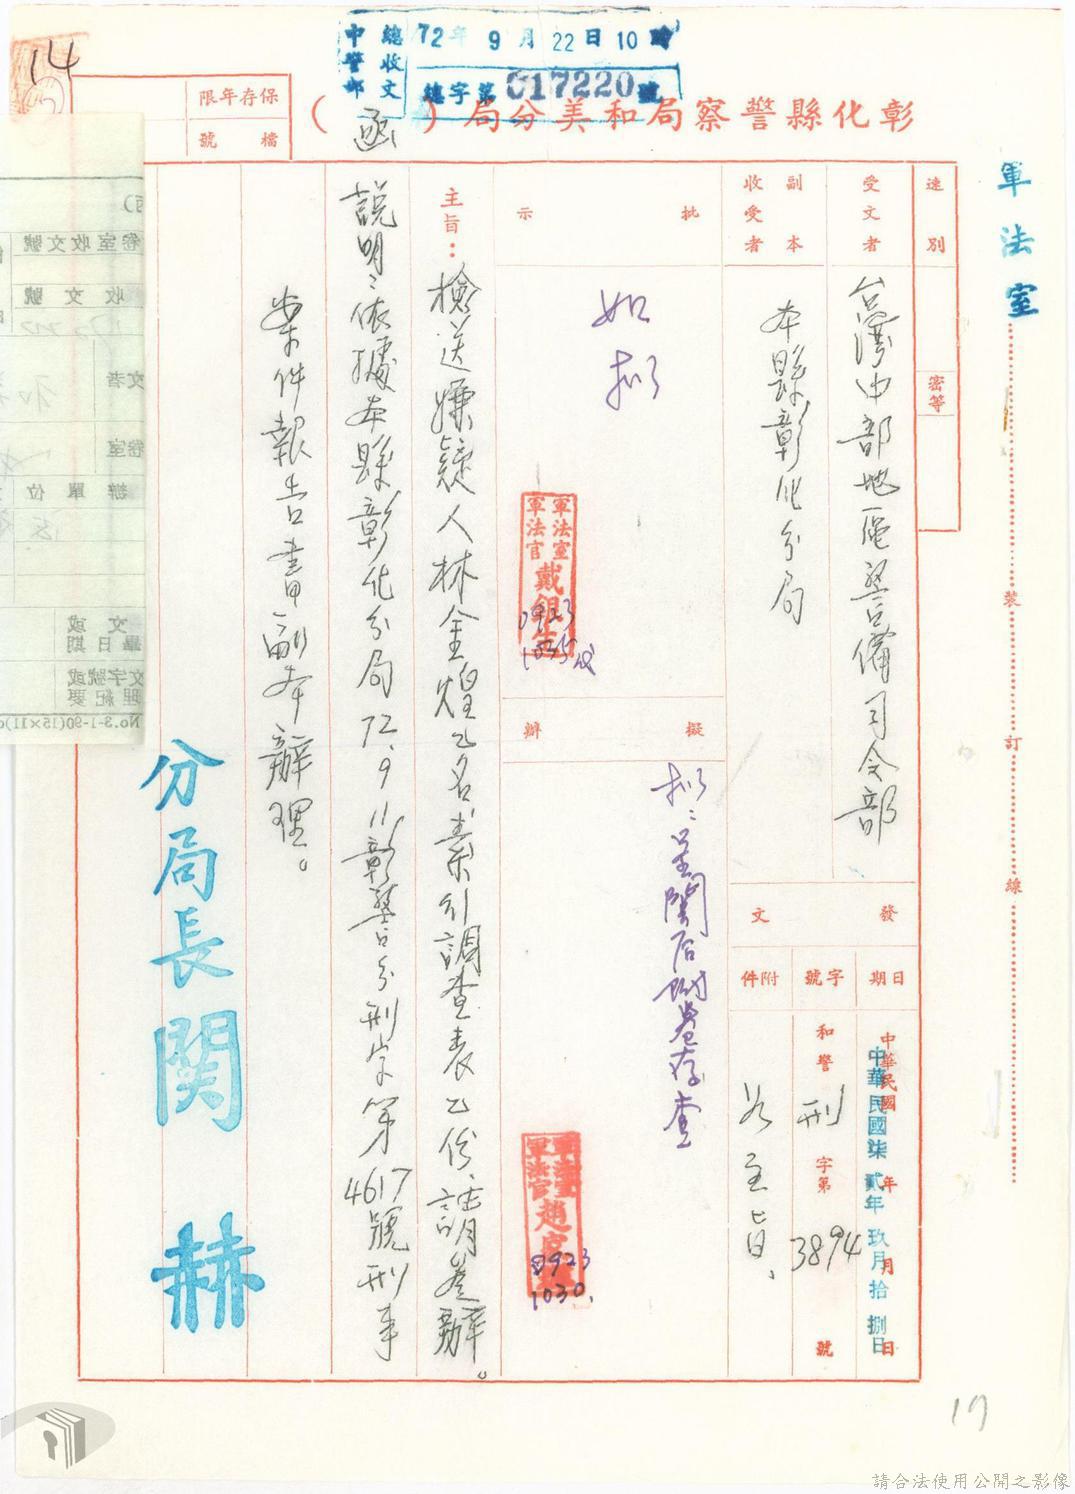 14
中警部
總收文
72年9月22日10時
總字第017220號
保存年限
檔號
彰化縣警察局和美分局(函)
軍法室
裝
訂
線
速別
密等
受文者
台灣中部地區警備司令部
副本收受者
本縣彰化分局
發文
日期
中華民國 年 月 日
中華民國柒貳年玖月拾捌日
字號
和警刑字第3894號
附件
如主旨、
批示
如拟
軍法室
軍法官
戴
0923
擬辦
拟:呈閱后附卷存查
軍法官
趙
0923
1030.
主旨:檢送嫌疑人林金煌乙名素引調查表乙份、請差辦。
說明:依據本縣彰化分局72.9.11彰警分刑字第4617號刑事
案件報告書副本辦理。
分局長関赫
卷室收文號
收文號
文者
卷室
辦單位
文或
日期
文字號或
理紀要
No.3-1-90(15×11)
17
請合法使用公開之影像